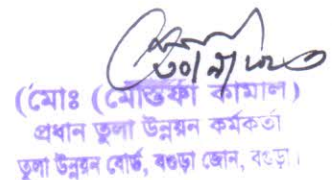 (মোঃ (মোস্তফা কামাল)
প্রধান তুলা উন্নয়ন কর্মকর্তা
তুলা উন্নয়ন বোর্ড, বগুড়া জোন, বগুড়া।